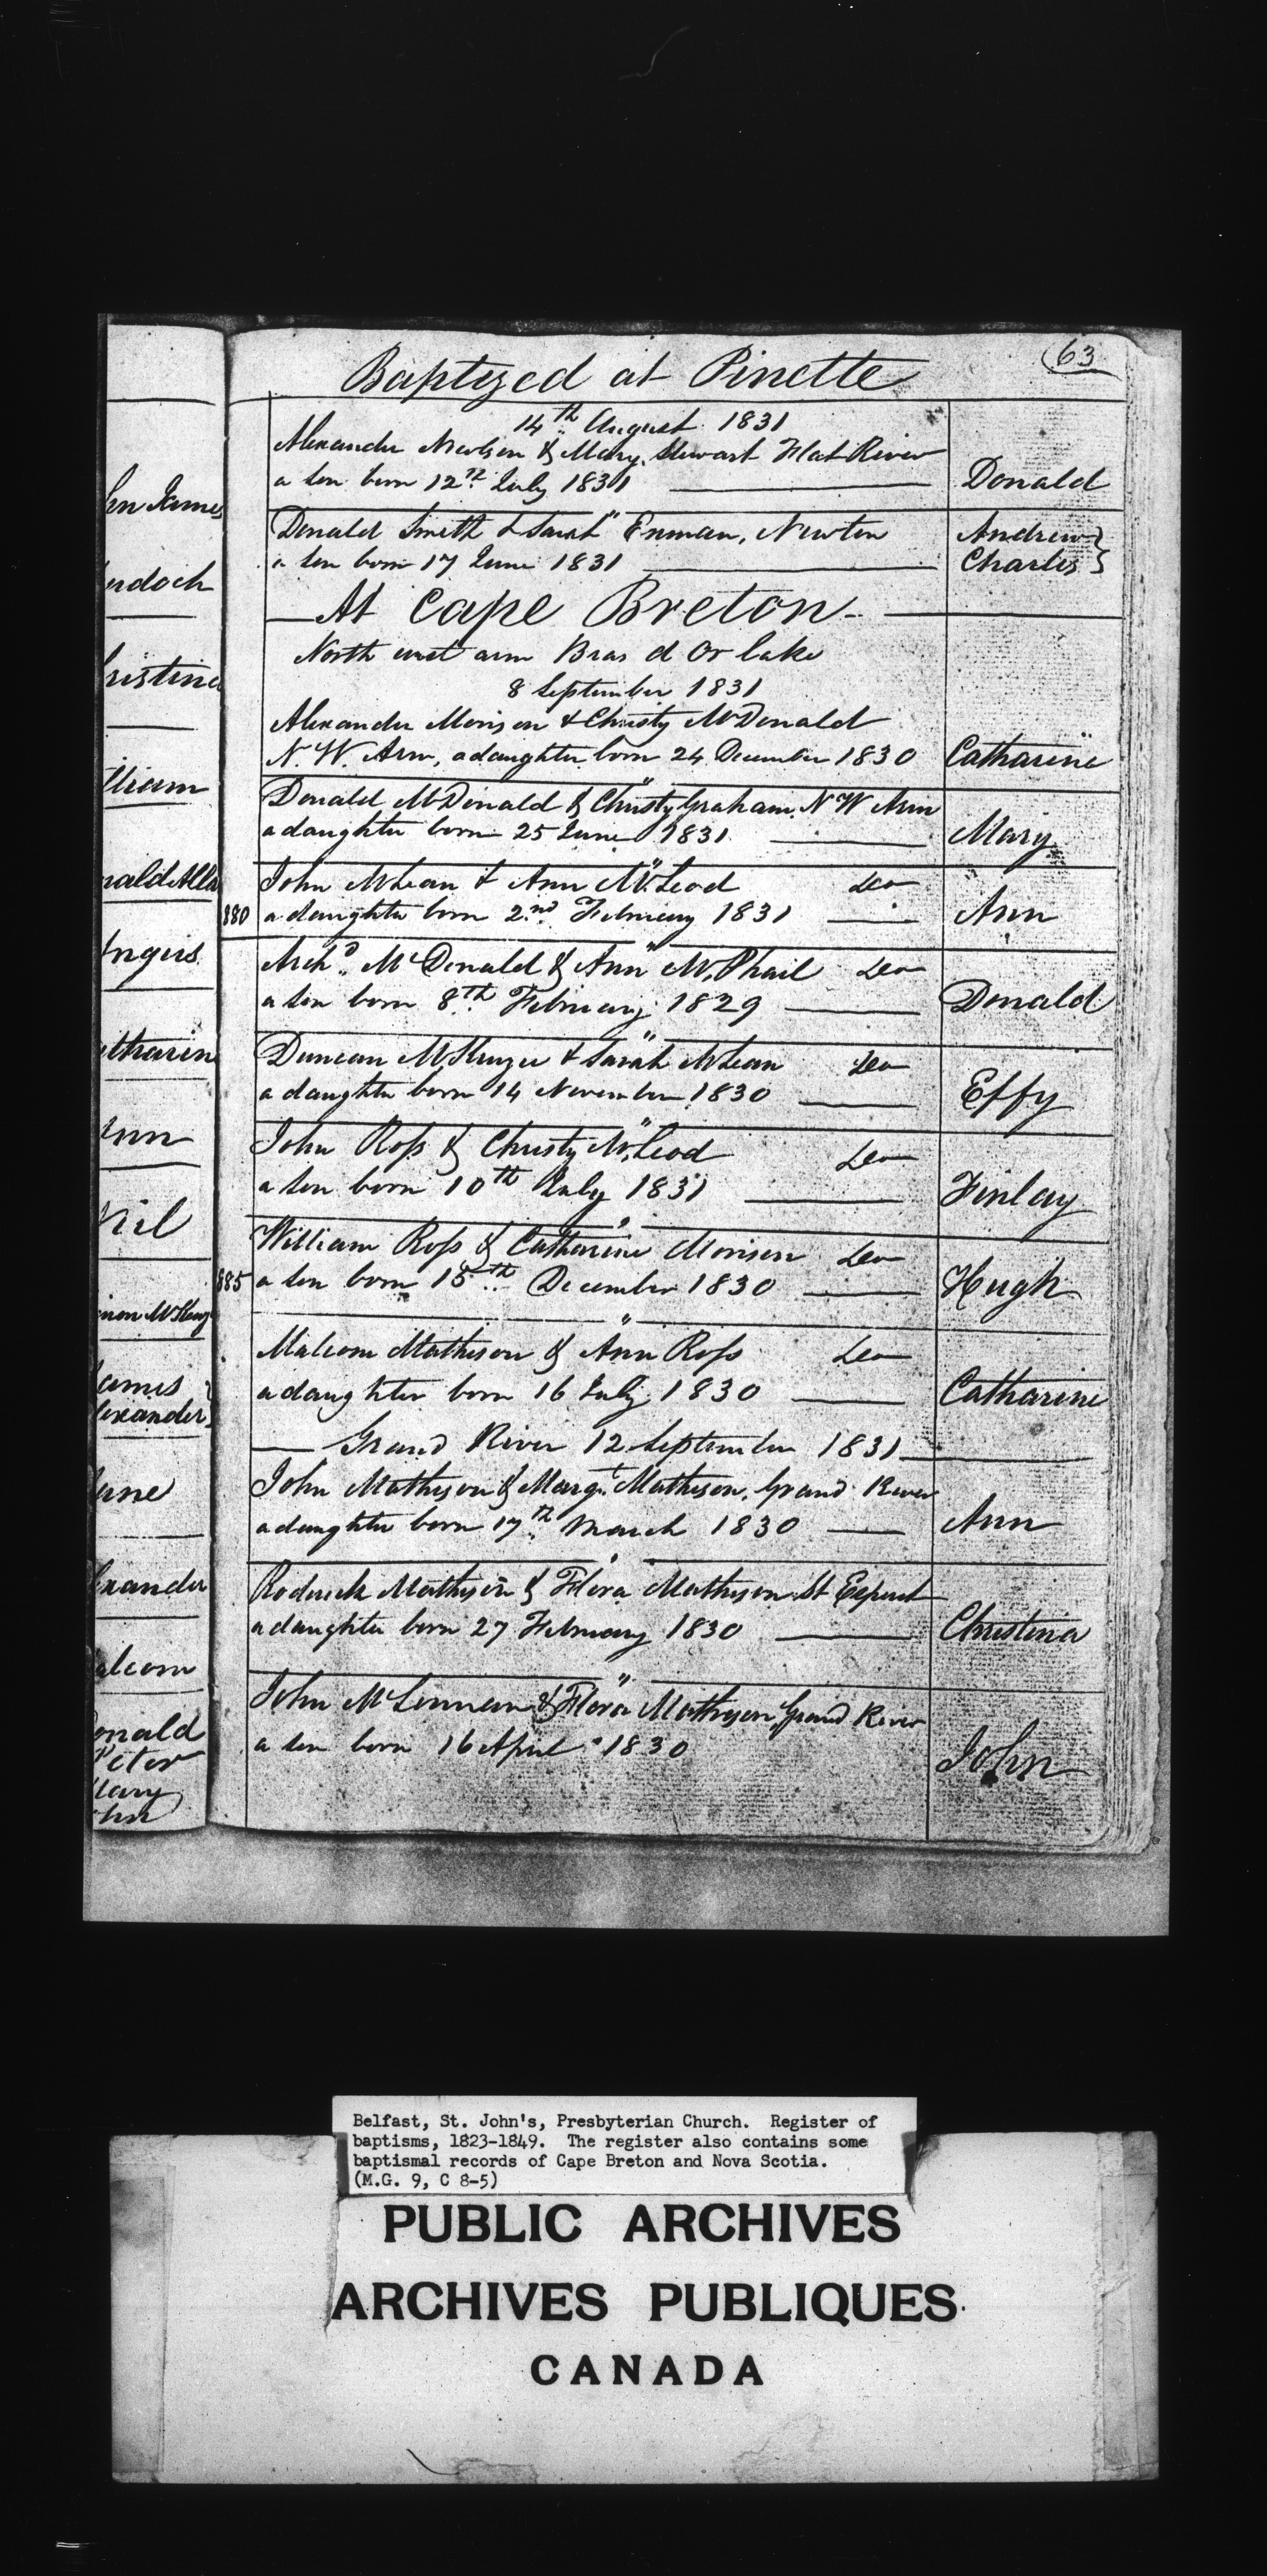 63
Baptized at Pinette
14th August 1831
Alexander Nicolson & Mary Stewart Flat River
a son born 12th July 1831 Donald
Donald Smith & Sarah Enman, Newton Andrew
a son born 17 June 1831 Charles
At Cape Breton
North west arm Bras d Or lake
8 September 1831
Alexander Morison & Christy McDonald
N. W. Arm, a daughter born 24 December 1830 Catharine
Donald McDonald & Christy Graham, N W Arm
a daughter born 25 June 1831 Mary
John McLean & Ann McLeod Do
880 a daughter born 2nd February 1831 Ann
Archd McDonald & Ann McPhail Do
a son born 8th February 1829 Donald
Duncan McKenzie & Sarah McLean Do
a daughter born 14 November 1830 Effy
John Ross & Christy McLeod Do
a son born 10th July 1831 Finlay
William Ross & Catharine Morison Do
885 a son born 15th December 1830 Hugh
Malcom Matheson & Ann Ross Do
a daughter born 16 July 1830 Catharine
Grand River 12 September 1831
John Matheson & Margt Matheson, Grand River
a daughter born 17th March 1830 Ann
Roderick Matheson & Flora Matheson St
a daughter born 27 February 1830 Christina
John McLennan & Flora Matheson Grand River
a son born 16 April 1830 John
hn James
urdoch
ristina
illiam
nald Allan
Angus
atharine
Ann
Neil
James
lexander
Jane
lexander
alcom
Donald
Peter
Mary
ohn
Belfast, St. John's, Presbyterian Church. Register of
baptisms, 1823-1849. The register also contains some
baptismal records of Cape Breton and Nova Scotia.
(M.G. 9, C 8-5)
PUBLIC ARCHIVES
ARCHIVES PUBLIQUES
CANADA